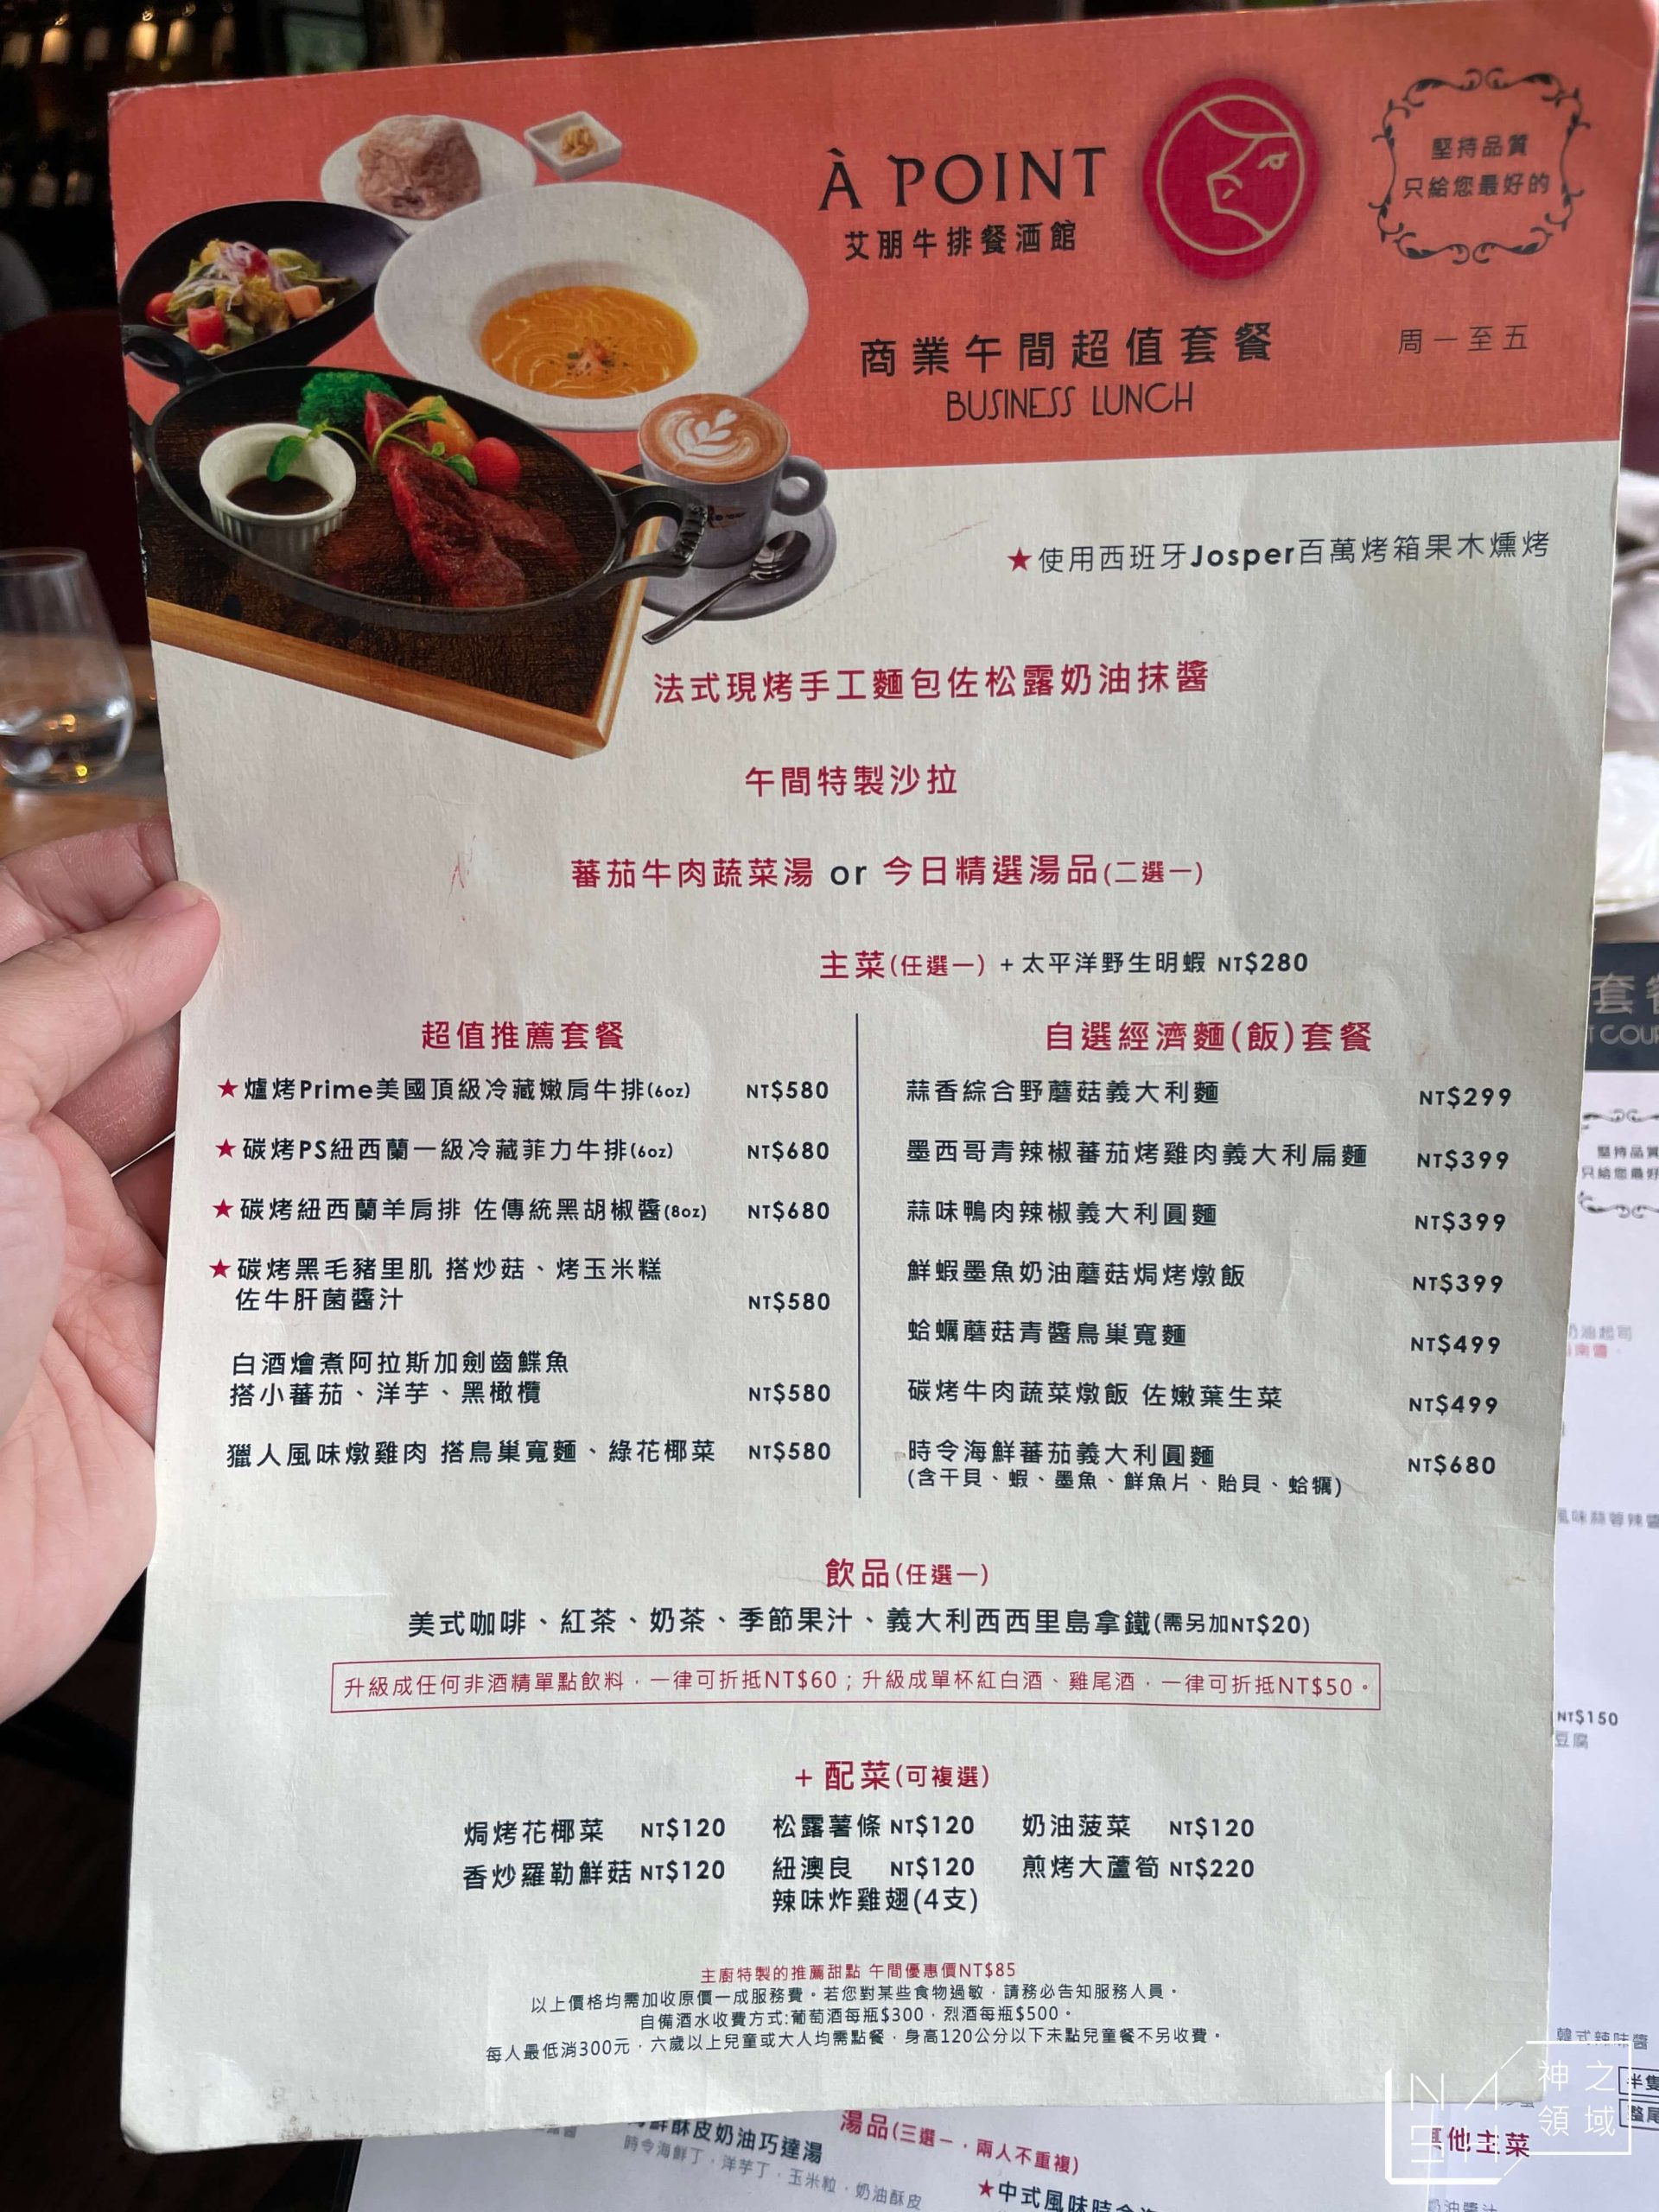 À POINT
艾朋牛排餐酒館
堅持品質
只給您最好的
商業午間超值套餐
周一至五
BUSINESS LUNCH
★使用西班牙Josper百萬烤箱果木燻烤
法式現烤手工麵包佐松露奶油抹醬
午間特製沙拉
蕃茄牛肉蔬菜湯 or 今日精選湯品(二選一)
主菜(任選一) + 太平洋野生明蝦 NT$280
超值推薦套餐
★爐烤Prime美國頂級冷藏嫩肩牛排(6oz) NT$580
★碳烤PS紐西蘭一級冷藏菲力牛排(6oz) NT$680
★碳烤紐西蘭羊肩排 佐傳統黑胡椒醬(8oz) NT$680
★碳烤黑毛豬里肌 搭炒菇、烤玉米糕
佐牛肝菌醬汁 NT$580
白酒燴煮阿拉斯加劍齒鰈魚
搭小蕃茄、洋芋、黑橄欖 NT$580
獵人風味燉雞肉 搭鳥巢寬麵、綠花椰菜 NT$580
自選經濟麵(飯)套餐
蒜香綜合野蘑菇義大利麵 NT$299
墨西哥青辣椒蕃茄烤雞肉義大利扁麵 NT$399
蒜味鴨肉辣椒義大利圓麵 NT$399
鮮蝦墨魚奶油蘑菇焗烤燉飯 NT$399
蛤蠣蘑菇青醬鳥巢寬麵 NT$499
碳烤牛肉蔬菜燉飯 佐嫩葉生菜 NT$499
時令海鮮蕃茄義大利圓麵 NT$680
(含干貝、蝦、墨魚、鮮魚片、貽貝、蛤蠣)
飲品(任選一)
美式咖啡、紅茶、奶茶、季節果汁、義大利西西里島拿鐵(需另加NT$20)
升級成任何非酒精單點飲料，一律可折抵NT$60；升級成單杯紅白酒、雞尾酒，一律可折抵NT$50。
+ 配菜(可複選)
焗烤花椰菜 NT$120 松露薯條 NT$120 奶油菠菜 NT$120
香炒羅勒鮮菇 NT$120 紐澳良 NT$120 煎烤大蘆筍 NT$220
辣味炸雞翅(4支)
主廚特製的推薦甜點 午間優惠價NT$85
以上價格均需加收原價一成服務費。若您對某些食物過敏，請務必告知服務人員。
自備酒水收費方式:葡萄酒每瓶$300，烈酒每瓶$500。
每人最低消300元，六歲以上兒童或大人均需點餐，身高120公分以下未點兒童餐不另收費。
套
COU
堅持品質
只給您最好
NT$150
豆腐
韓式辣味醬
半隻
其他主菜
酥皮奶油巧達湯
時令海鮮丁，洋芋丁，玉米粒，奶油酥皮
湯品(三選一，兩人不重複)
★中式風味時令
神之
領域